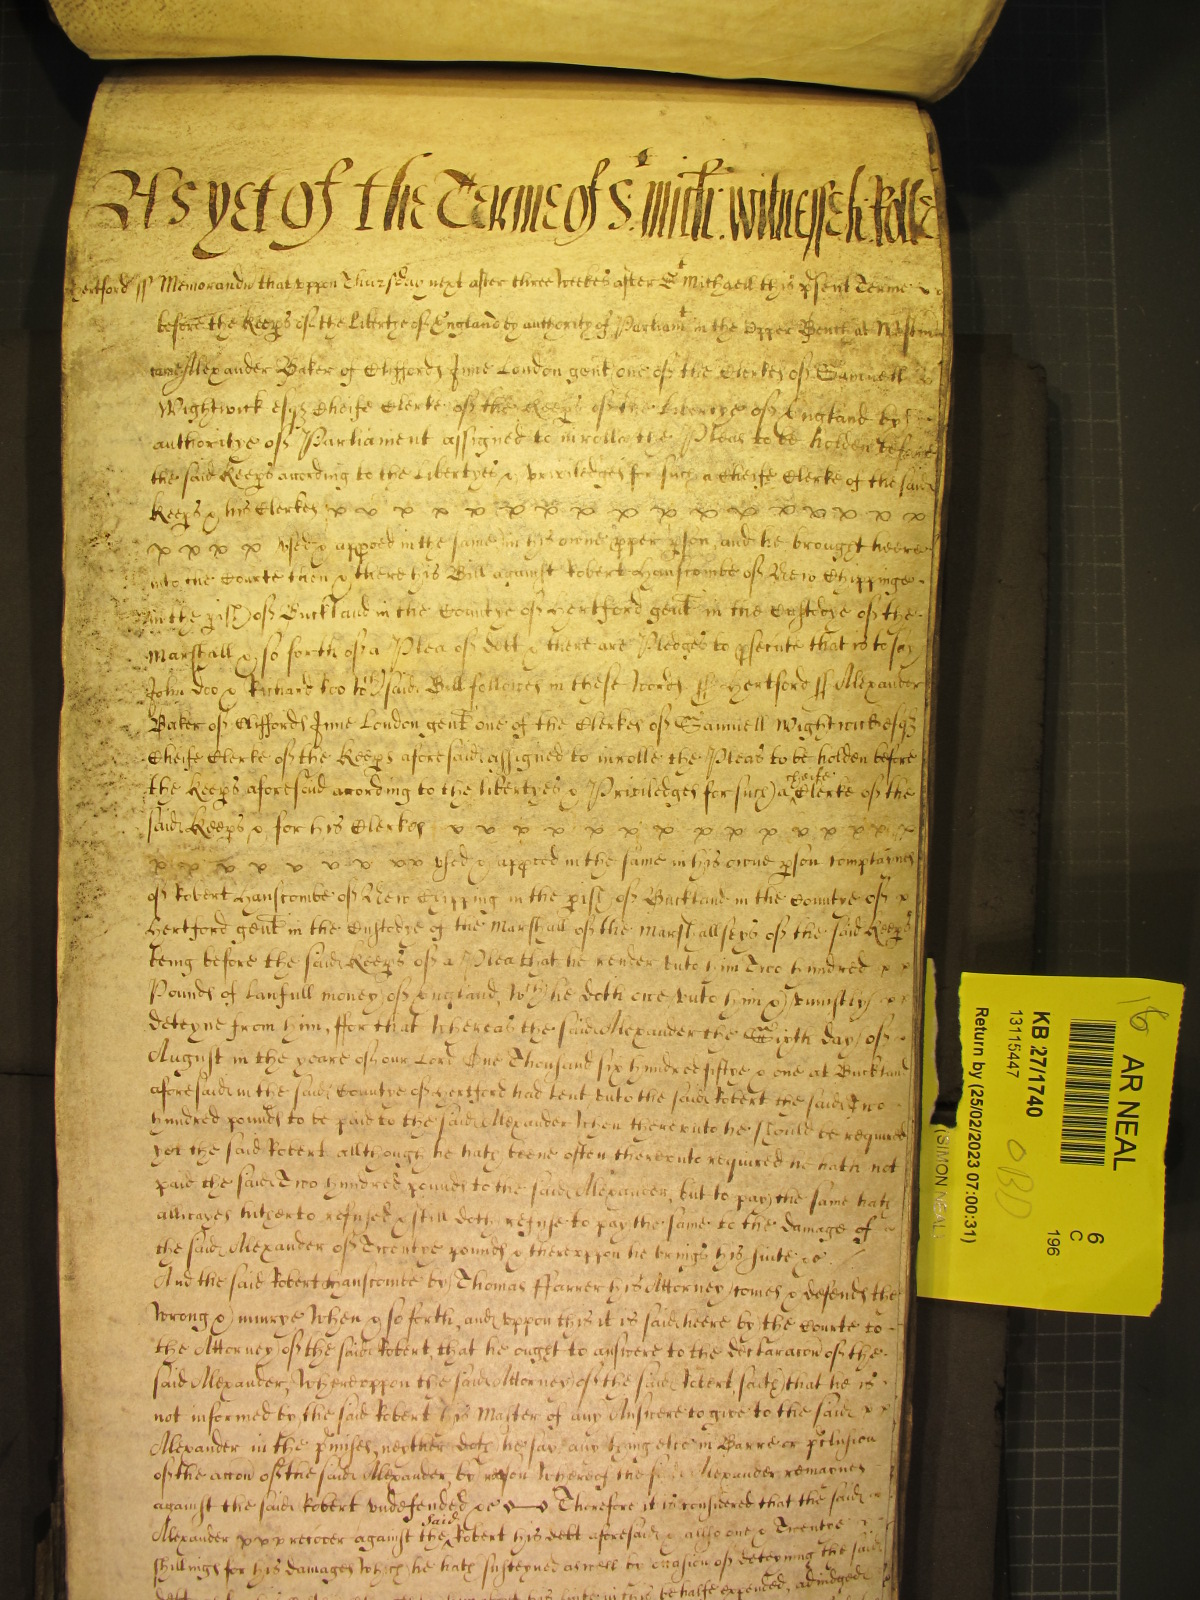 As yet of the Terme of St. Mich: witnesseth: Rolle
Hertford ss Memorandu that uppon Thursday next after three weekes after St Michaell this psent Terme
before the Keeps of the Libertye of England by authority of Parliamt in the Upper Bench at Westm
came Alexander Baker of Cliffords Inne London gent one of the Clerkes of Samuell
Wightwick esqr Cheife Clerke of the Keeps of the Libertye of England by
authoritye of Parliament assigned to inrolle the Pleas to be holden before
the said Keeps acording to the Libertyes & Priviledges for such a Cheife Clerke of the said
Keeps & his Clerkes
used & appoed in the same in his owne pper pson, and he brought heere
into the Courte then & there his Bill against Robert Hanscombe of New Chippinge
in the pish of Buckland in the Countye of Hertford gent in the Custodye of the
Marshall & so forth of a Plea of debt & there are Pledges to psecute that is to say
John Doo & Richard Roo wch said Bill followes in these words ss Hertford ss Alexander
Baker of Cliffords Inne London gent one of the Clerkes of Samuell Wightwick esqr
Cheife Clerke of the Keeps aforesaid assigned to inrolle the Pleas to be holden before
the Keeps aforesaid acording to the libertyes & Priviledges for such a cheife Clerke of the
said Keeps & for his Clerkes
used & appoed in the same in his owne pson complaynes
of Robert Hanscombe of New Chipping in the pish of Buckland in the Countye of
Hertford gent in the Custodye of the Marshall of the Marshallseys of the said Keeps
being before the said Keeps of a Plea that he render unto him Two hundred
Pounds of lawfull money of England, wch he doth owe unto him & uniustly
deteyne from him, ffor that Whereas the said Alexander the Sixth day of
August in the yeare of our Lord One Thousand six hundred fiftye & one at Buckland
aforesaid in the said Countye of Hertford had lent unto the said Robert the said Two
hundred pounds to be paid to the said Alexander When thereunto he should be required
yet the said Robert allthough he hath beene often thereunto required he hath not
paid the said Two hundred pounds to the said Alexander, but to pay the same hath
allwayes hitherto refused & still doth refuse to pay the same to the damage of
the said Alexander of Twentye pounds & thereuppon he brings his suite &c
And the said Robert Hanscombe by Thomas ffarrer his Attorney comes & defends the
Wrong & iniurye When & so forth, and uppon this it is said heere by the Courte to
the Attorney of the said Robert, that he ought to answere to the declaracon of the
said Alexander, Whereuppon the said Attorney of the said Robert saith that he is
not informed by the said Robert his Master of any Answere to give to the said
Alexander in the pmises, neyther doth he say any thing else in Barre or pclusion
of the accon of the said Alexander, by reason Whereof the said Alexander remaynes
against the said Robert undefended &c Therefore it is considered that the said
Alexander recover against the said Robert his debt aforesaid & allso one & Twentye
shillings for his damages Which he hath susteyned aswell by occasion of deteyning the said
his suite in this behalfe expended, adiudged
16
AR NEAL
KB 27/1740
13115447
Return by (25/02/2023 07:00:31)
6
C
196
OBD
(SIMON NEAL)